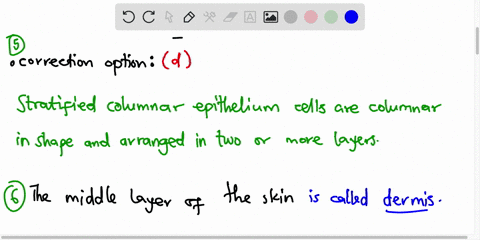 5
• correction option: (d)
Stratified columnar epithelium cells are columnar
in shape and arranged in two or more layers.
6 The middle layer of the skin is called dermis.